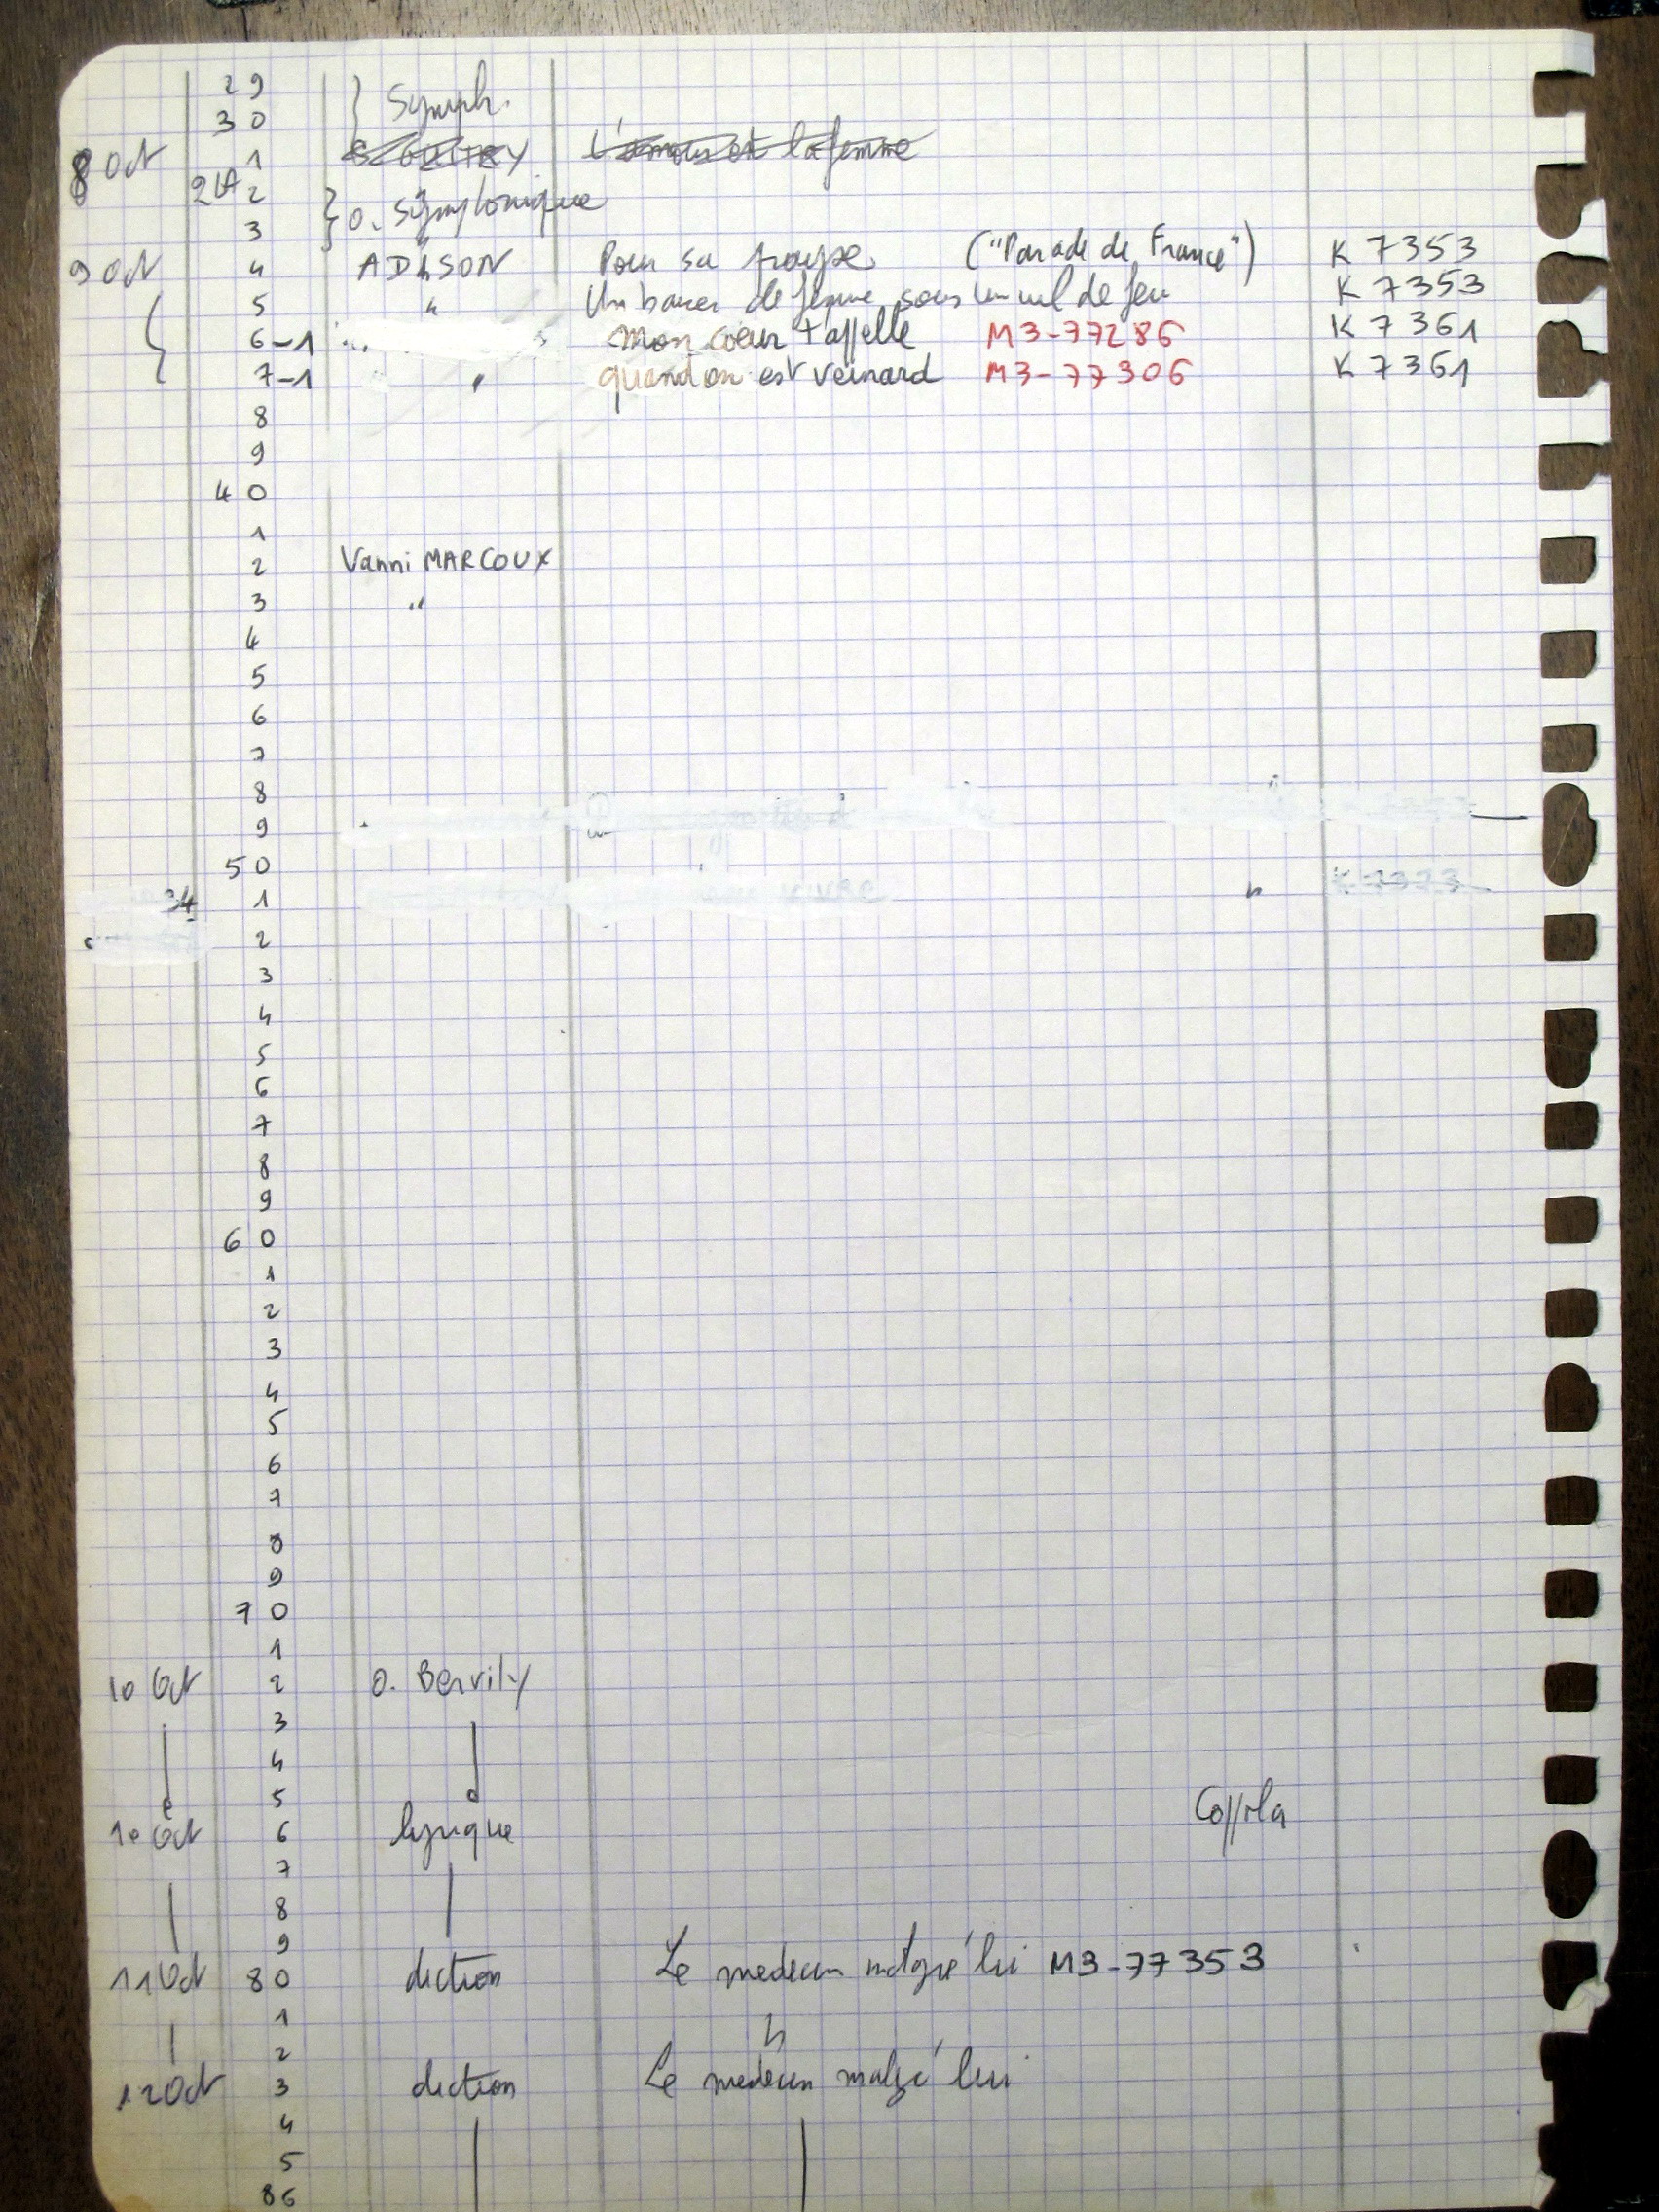 29
30 Symph.
8 Oct 1 S. GUITRY L'amour et la femme
2LA 2 O. Symphonique
3 "
9 Oct 4 ADISON Pour sa troupe ("Parade de France") K 7353
5 " Un baiser de femme sous un ciel de feu K 7353
6-1 Mon coeur t'appelle M3-77286 K 7361
7-1 " quand on est veinard M3-77306 K 7361
8
9
40
1
2 Vanni MARCOUX
3 "
4
5
6
7
8
9
50
34 1 VIVRE " K 7373
2
3
4
5
6
7
8
9
60
1
2
3
4
5
6
7
8
9
70
1
10 Oct 2 O. Bervily
3
4
5 Coppola
10 Oct 6 lyrique
7
8
9
11 Oct 80 diction Le medecin malgré lui M3-77353
1
2 "
12 Oct 3 diction Le medecin malgré lui
4
5
86